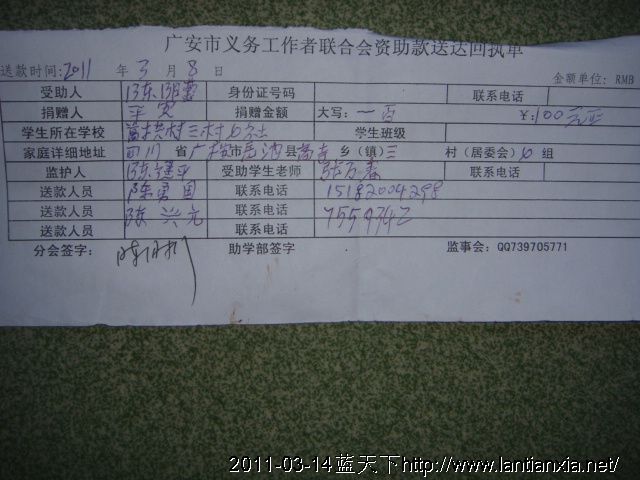 广安市义务工作者联合会资助款送达回执单
送款时间:2011 年 3 月 8 日 金额单位: RMB
受助人 身份证号码 联系电话
捐赠人 平实 捐赠金额 大写: 一百 ¥:100元正
学生所在学校 学生班级
家庭详细地址 四川 省 广安 市 县 乡(镇) 三 村(居委会) 组
监护人 陈建平 受助学生老师 张万春
送款人员 陈勇国 联系电话 15182004298
送款人员 陈兴元 联系电话 7559342
送款人员 联系电话
分会签字: 助学部签字 监事会: QQ739705771
2011-03-14蓝天下http://www.lantianxia.net/